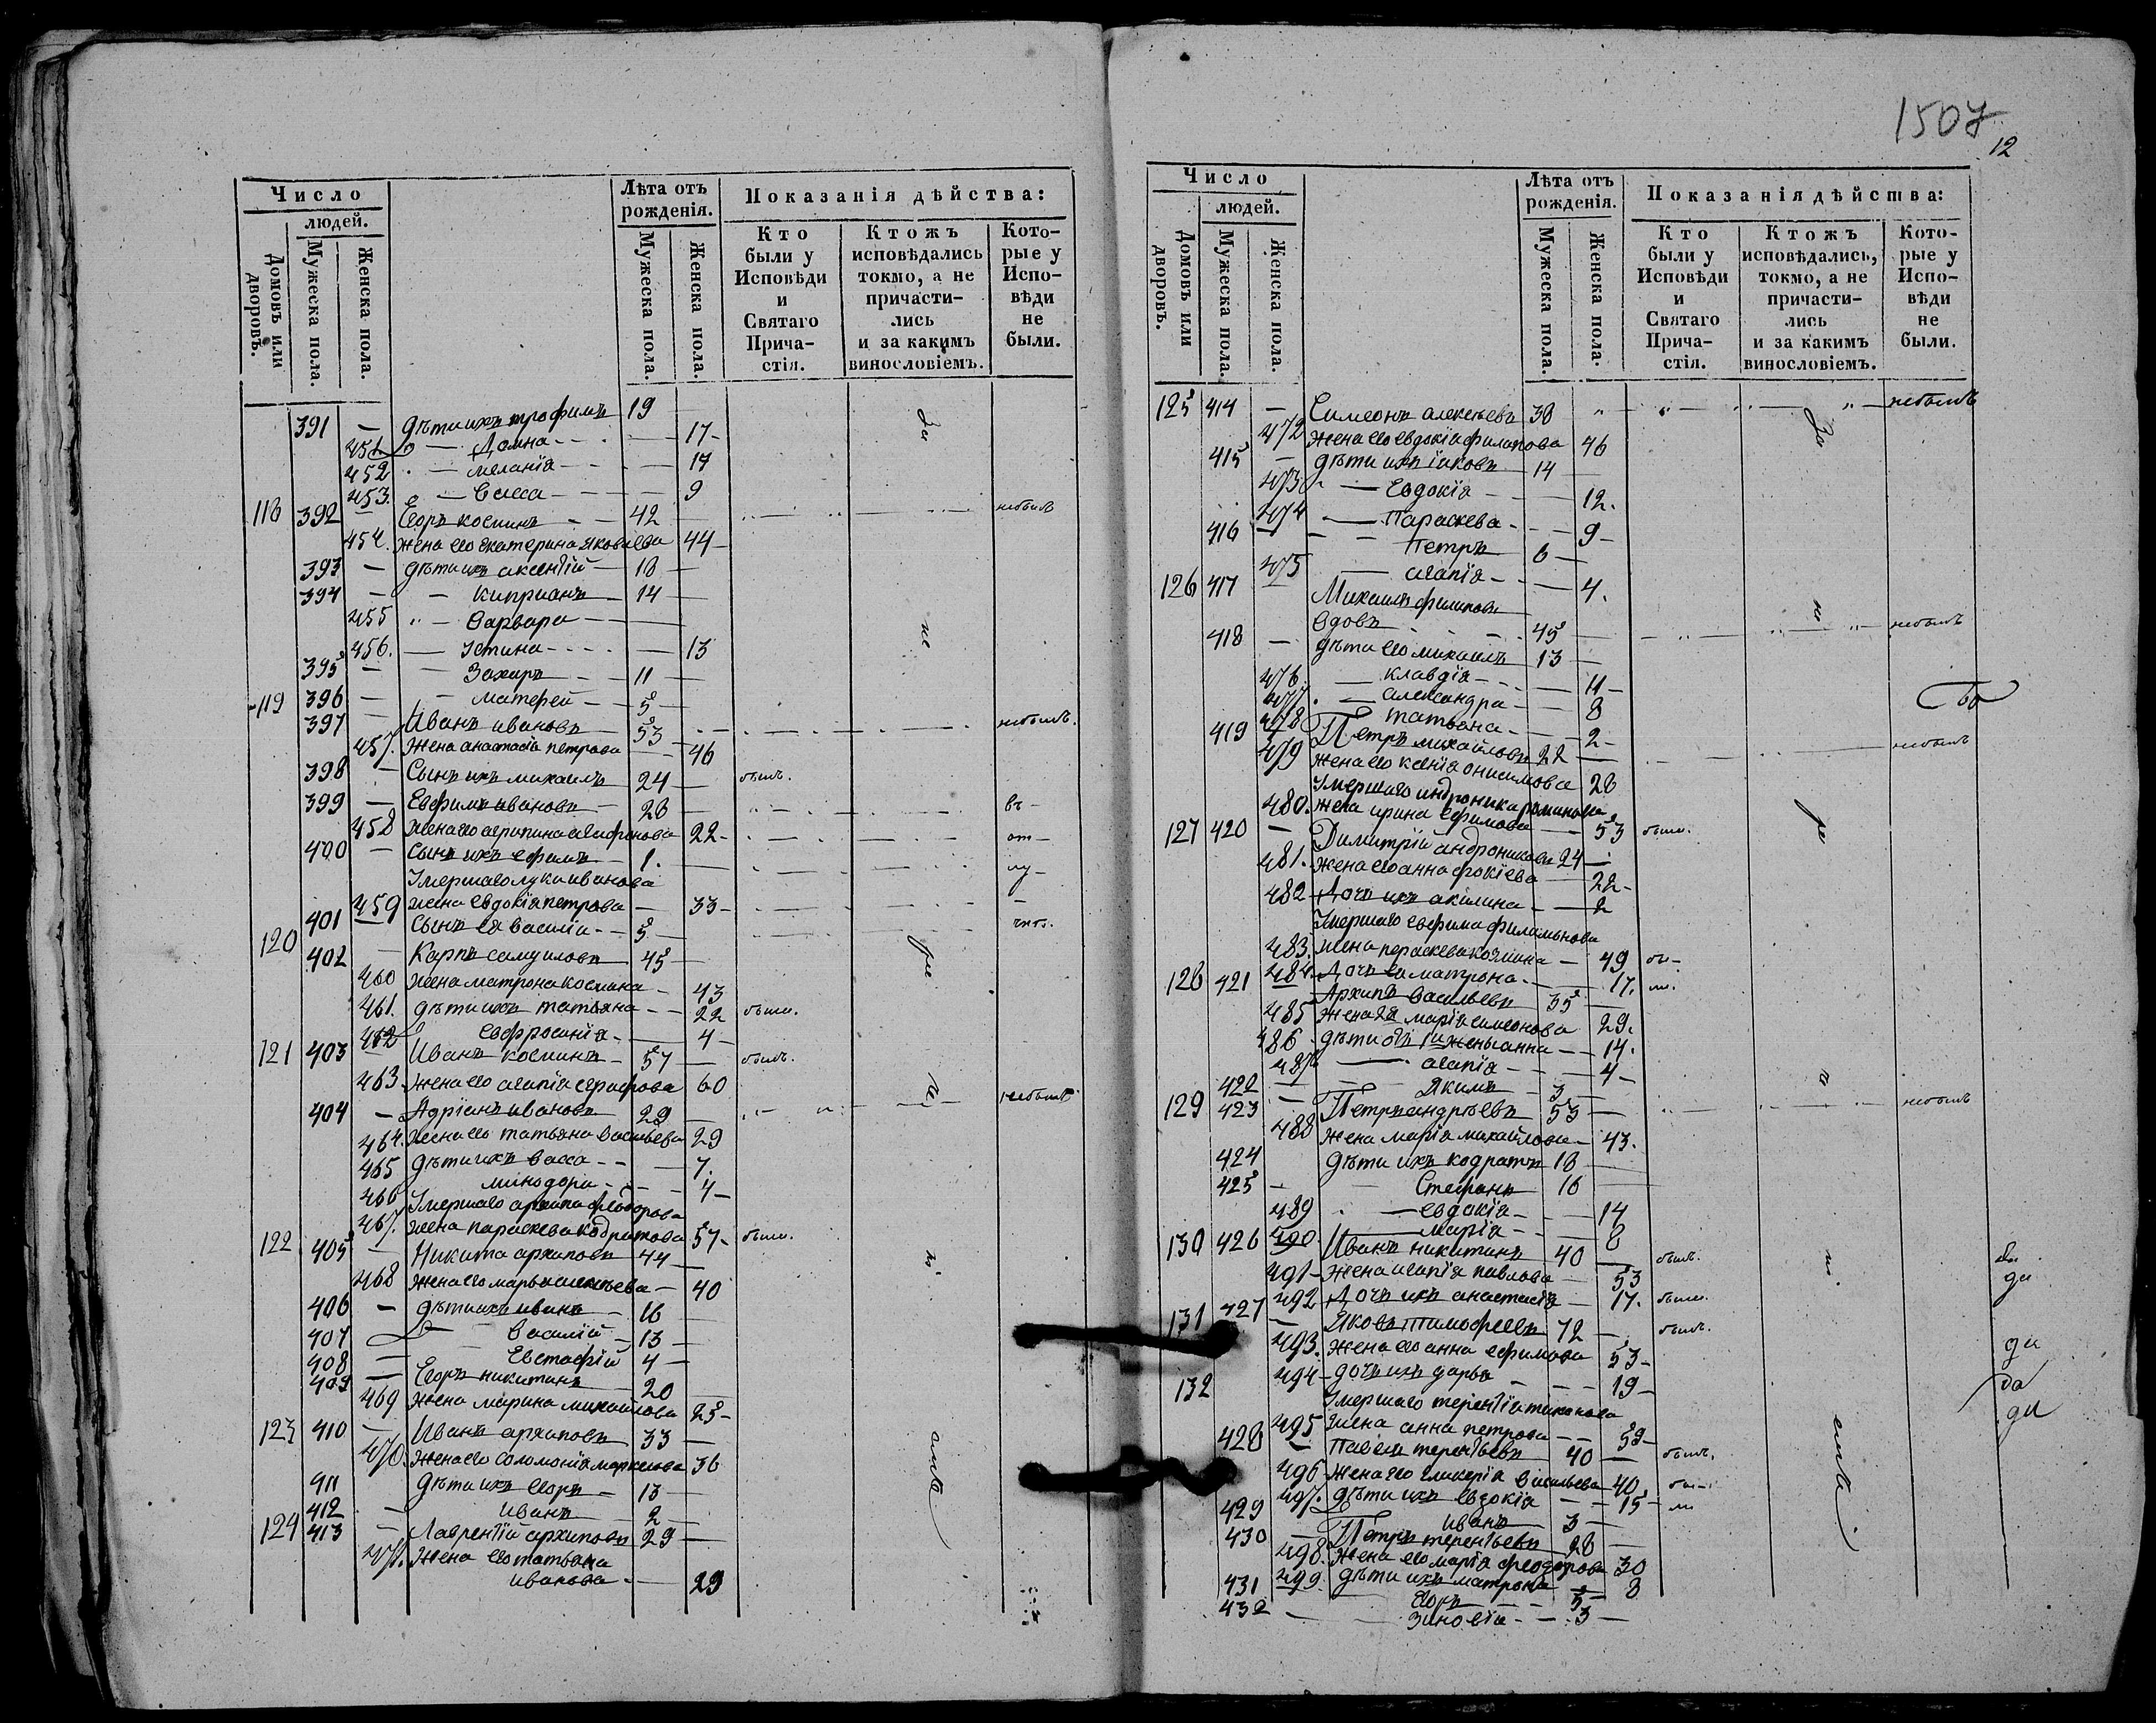 1507
12
Число
людей.
Домовъ или дворовъ.
Мужеска пола.
Женска пола.
Лѣта отъ рожденія.
Мужеска пола.
Женска пола.
Показанія дѣйства:
Кто были у Исповѣди и Святаго Прича-стія.
Ктожъ исповѣдались токмо, а не причасти-лись и за какимъ винословіемъ.
Кото-рые у Испо-вѣди не были.
391 — дѣти ихъ трофимъ 19 —
451 — Домна — 17 -
452 — меланія — 17
453. — Васса — 9
118 392 — Егоръ косминъ — 42 — небылъ
454. жена его екатерина яковлева 44 —
393 — дѣти ихъ аксентій — 18 —
394 — киприанъ — 14 —
455 " — Варвара —
456. — Устина — 13
395 — Захаръ — 11 —
396 — матфей — 5 —
119 397 — Иванъ ивановъ 53 — небылъ.
457. жена анастасія петрова — 46
398 — Сынъ ихъ михаилъ 24 — былъ.
399 — Евфимъ ивановъ — 26 — въ —
458 жена его агрипина агафонова 22 - от —
400 — сынъ ихъ ефимъ — 1. — лу —
Умершаго луки иванова
459 жена евдокія петрова — 33 —
401 — сынъ ея василій — 5 — чкѣ.
120 402 — Карпъ самуиловъ 45 —
460 жена матрона космина — 43
461. дѣти ихъ татьяна — 22 была.
462 евфросинія — 4 —
121 403 — Иванъ косминъ — 57 — былъ.
463. жена его агапія евграфова 60
404 — Адріанъ ивановъ 29 — небылъ
464. жена его татьяна васильева 29
465 дѣти ихъ васса — 7.
466 минодора — 4 —
Умершаго архипа феодорова
467. жена параскева кодратова 57 — была.
122 405 — Никита архиповъ 44 —
468 жена его марья алексѣева — 40
406 — дѣти ихъ иванъ — 16 —
407 — василій — 13 —
408 — Евстафій 4 —
409 — Егоръ никитинъ 20 —
469 жена марина михайлова 25 —
123 410 — Иванъ архиповъ 33 —
470. жена его соломонія маркелова 36
411 дѣти ихъ егоръ — 13 —
412 — иванъ — 2 —
124 413 — Лаврентій архиповъ 29 —
471. жена его татьяна
иванова — 29
За
не
ра
че
ні
емъ
Число
людей.
Домовъ или дворовъ.
Мужеска пола.
Женска пола.
Лѣта отъ рожденія.
Мужеска пола.
Женска пола.
Показанія дѣйства:
Кто были у Исповѣди и Святаго Прича-стія.
Ктожъ исповѣдались, токмо, а не причасти-лись и за какимъ винословіемъ.
Кото-рые у Испо-вѣди не были.
125 414 — Симеонъ алексѣевъ 38 небылъ
472 жена его евдокія филипова 46
415 — дѣти ихъ іаковъ — 14 —
473 — Евдокія — 12.
474 — Параскева — 9 —
416 — Петръ 6 —
475 — агапія — 4.
126 417 Михаилъ филиповъ
вдовъ — 45 — небылъ
418 — дѣти его михаилъ 13 —
476 — клавдія — 11 —
477. — александра — 8
478 татьяна — 2 —
419 — Петръ михайловъ 22 — небылъ
479 жена его ксенія онисимова 26
Умершаго андроника
480. жена ирина ефимова — 53 была.
127 420 — Димитрій андрониковъ 24 —
481. жена его анна фокіева — 22 —
482 Дочь ихъ акилина — 2
Умершаго евфима
483. жена параскева космина — 49 бы —
484. Дочь ея матрона — 17. ли.
128 421 — Архипъ васильевъ 35 —
485 жена 2я марія симеонова 29.
486. дѣти отъ 1й жены анна — 14.
487. — агапія — 4 —
422 — Якимъ — 3 —
129 423 — Петръ андрѣевъ 53 — небылъ
488 жена марія михайлова — 43.
424 дѣти ихъ кодратъ 18 —
425 — Стефанъ 16 —
489 — евдокія — 14
490 — марія — 8
130 426 — Иванъ никитинъ 40 — былъ.
491 — жена агапія павлова — 53
492 Дочь ихъ анастасія — 17. была.
131 427 — Яковъ тимофеевъ 72 — былъ.
493. жена его анна ефимова 53 —
494 — дочь ихъ дарья — 19 —
132 Умершаго терентія
495 жена анна петрова — 59 —
428 — Павелъ терентьевъ 40 — былъ.
496 жена его гликерія васильева 40. бы —
497. дѣти ихъ евдокія — 15 — ли
429 — иванъ 3 —
430 — Петръ терентьевъ 28 —
498. жена его марія феодорова 30
499. дѣти ихъ матрона — 8
431 Егоръ — 5 —
432 — Зиновія — 3 —
За
не
ра
че
ні
емъ
да
да
да
да